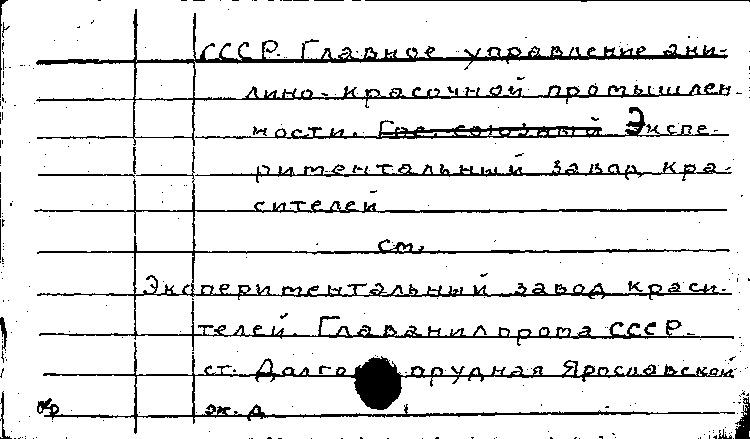 СССР. Главное управление ани-
лино-красочной промышлен-
ности. Экспе-
риментальный завод кра-
сителей
см.
Экспериментальный завод краси-
телей. Главанилпрома СССР.
ст. Долгопрудная Ярославской
ж. д.